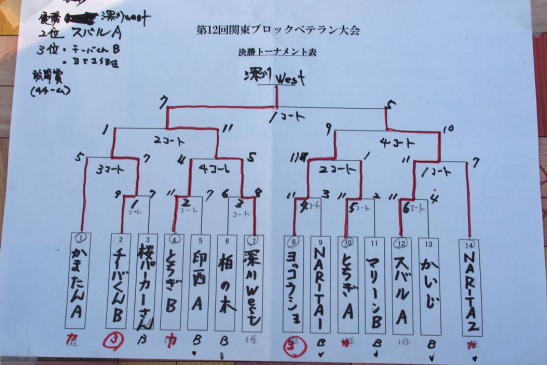 優勝 深川west
2位 スバルA
3位・チーバくんB
敢闘賞
(4チーム)
第12回関東ブロックベテラン大会
決勝トーナメント表
深川 west
7 1コート 5
1 2コート 11 9 4コート 10
5 3コート 7 4 4コート 5 11 2コート 1 11 1コート 7
9 1コート 7 11 2コート 8 6 3コート 8 11 4コート 3 11 5コート 2 11 6コート 4
1 2 3 4 5 6 7 8 9 10 11 12 13 14
かまたんA
チーバくんB
桜パーカーさん
とちぎB
印西A
柏の木
深川west
ヨコラン3
NARITA1
とちぎA
マリーンB
スバルA
かいじ
NARITA2
カ 3 B カ B B 1位 3 B カ B 1位 B カ